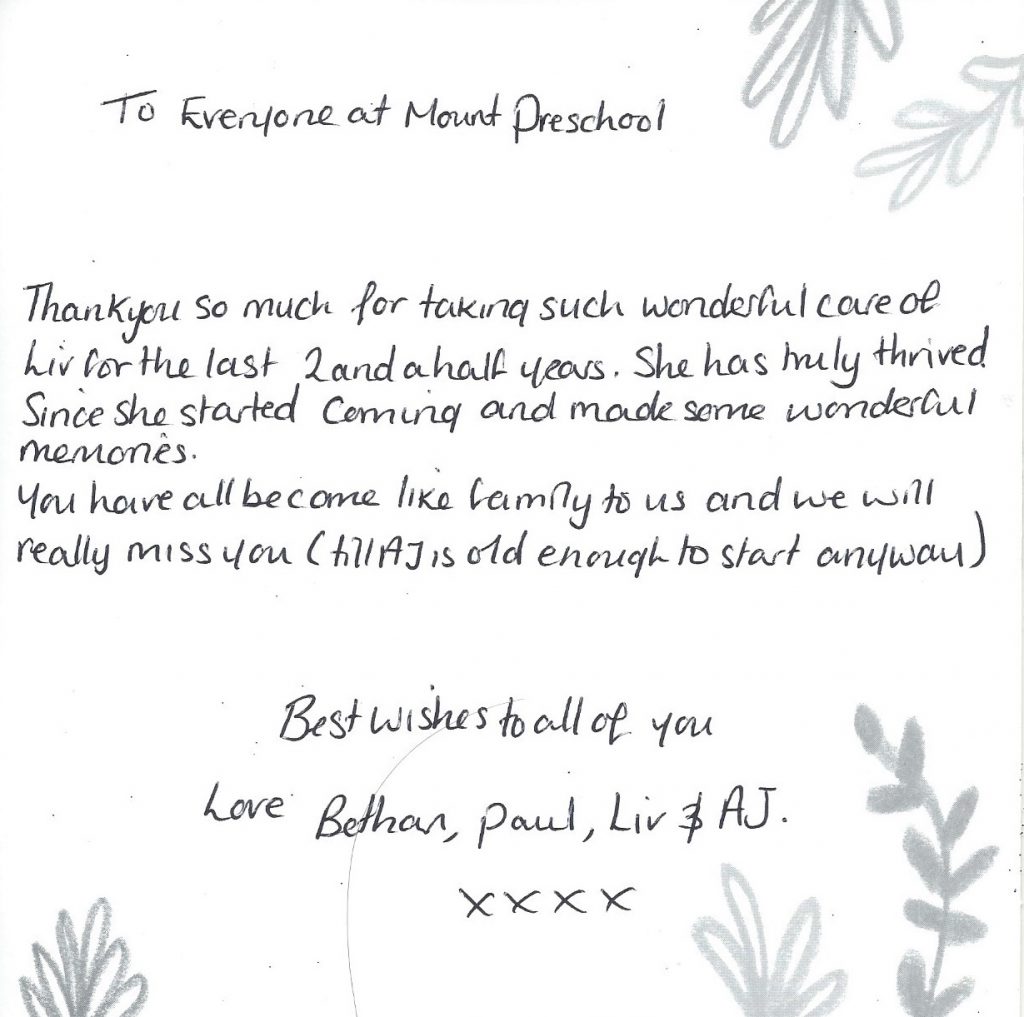 To Everyone at Mount Preschool
Thankyou so much for taking such wonderful care of
Liv for the last 2 and a half years. She has truly thrived
Since she started Coming and made some wonderful
memories.
You have all become like family to us and we will
really miss you (till AJ is old enough to start anyway)
Best wishes to all of you
Love Bethan, Paul, Liv & AJ.
xxxx